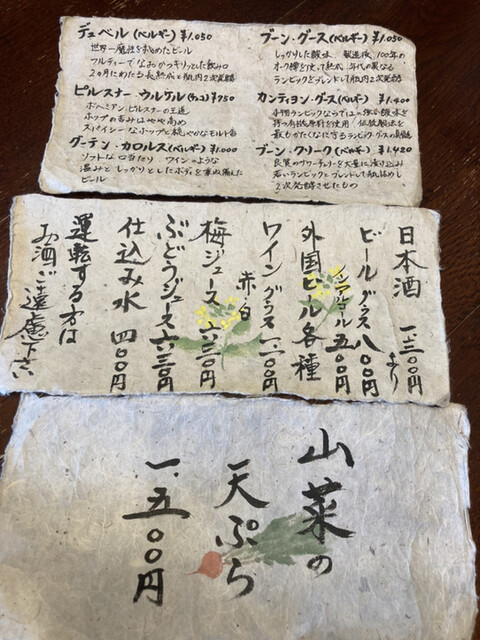 デュベル(ベルギー)¥1.050
世界一魔性を秘めたビール
フルーティーでなおかつキリッとした飲み口
2ヵ月にわたる長熟成と瓶内2次発酵
ピルスナー・ウルケル(チェコ)¥750
ボヘミアン・ピルスナーの王道
ホップの苦みはやや高め
スパイシーなホップと軽やかなモルト香
グーテン・カロルス(ベルギー)¥1.000
ソフトな口当たり ワインのような
温みとしっかりとしたボディを兼ね備えた
ビール
ブーン・グース(ベルギー)¥1.050
しっかりした酸味
オーク樽を使て熟成 年代の異なる
ランビックをブレンドして瓶内2次発酵
カンティヨン・グース(ベルギー)¥1.400
ブーン・クリーク(ベルギー)¥1.420
良質のサワーチェリーを大量に漬け込み
若いランビックとブレンドして瓶詰めし
2次発酵させたもの
日本酒 一、三〇〇円より
ビール グラス 八〇〇円
ノンアルコール 五〇〇円
外国ビール各種
ワイン グラス 一、二〇〇円
赤・白
梅ジュース 六三〇円
ぶどうジュース 六三〇円
仕込み水 四〇〇円
運転する方は
お酒ご遠慮下さい
山菜の
天ぷら
一、五〇〇円